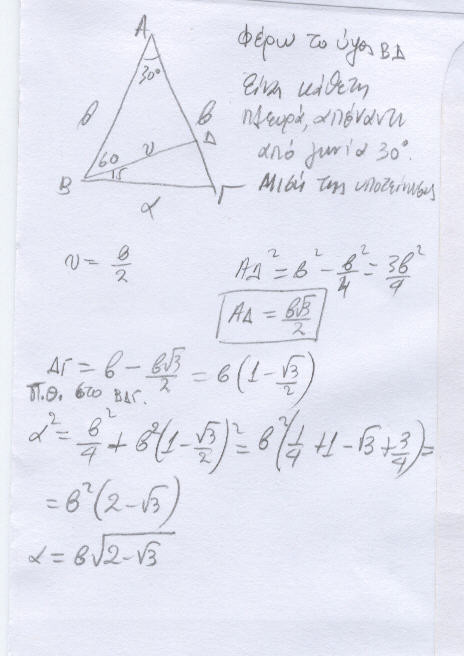 Α
30°
β
β
Δ
60
υ
15
Β
Γ
α
Φέρω το ύψος ΒΔ
Είναι κάθετη
πλευρά, απέναντι
από γωνία 30°.
Μισή της υποτείνουσας
υ = β/2
ΑΔ² = β² - β²/4 = 3β²/4
ΑΔ = β√3/2
ΔΓ = β - β√3/2 = β(1 - √3/2)
Π.Θ. στο ΒΔΓ.
α² = β²/4 + β²(1 - √3/2)² = β²(1/4 + 1 - √3 + 3/4) =
= β²(2 - √3)
α = β√(2 - √3)